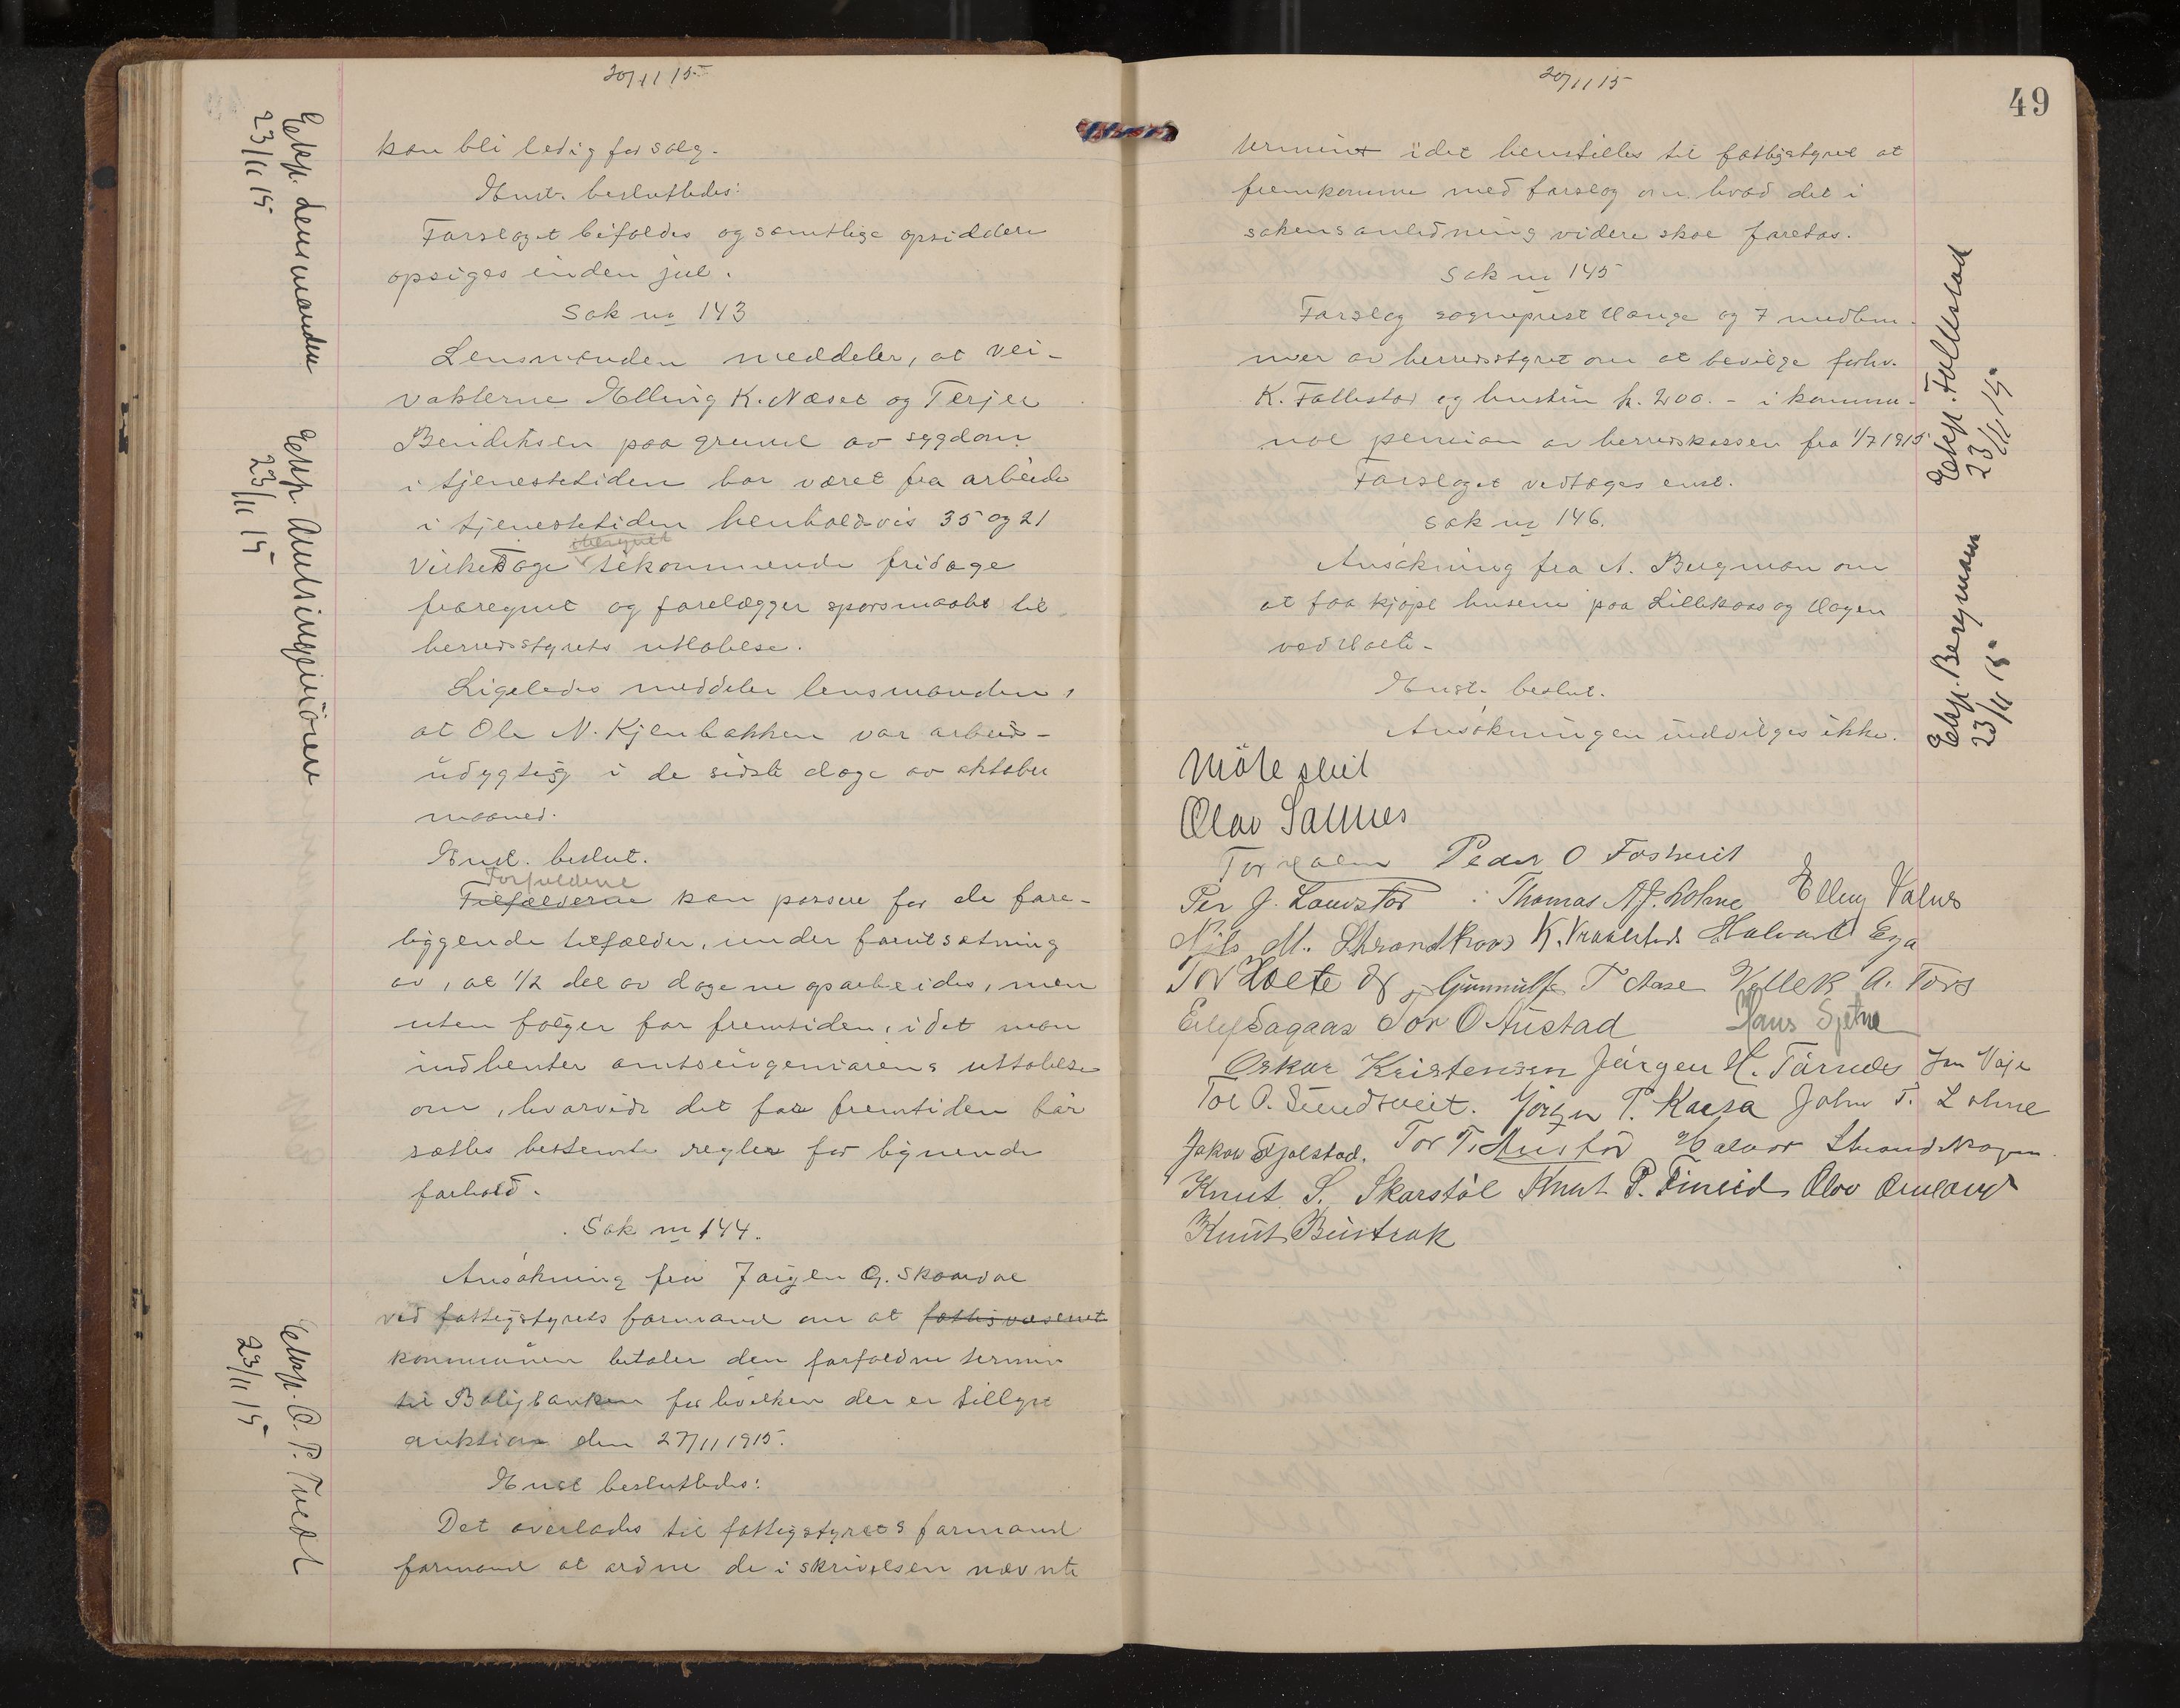 20/11 15
kan bli ledig for salg.
Enst. besluttedes:
Forslaget bifaldes og samtlige opsiddere
opsiges inden jul.
Sak no 143
Lensmanden meddeler, at vei-
vakterne Elling K. Næset og Terje
Bendiksen paa grund av sygdom
i tjenestetiden har været fra arbeide
i tjenestetiden henholdsvis 35 og 21
iberegnet
virkedage tilkommende fridage
fraregnet og forelægger spørsmaalet til
herredsstyrets uttalelse.
Ligeledes meddeler lensmanden,
at Ole N. Kjenbakken var arbeids-
udygtig i de sidste dage av oktober
maaned.
Enst. beslut.
Forfaldene
Tilfælderne kan passere for de fore-
liggende tilfælder, under forutsætning
av, at 1/2 del av dagene oparbeides, men
uten følger for fremtiden, idet man
indhenter amtsingeniørens uttalelse
om, hvorvidt det for fremtiden bør
sættes bestemte regler for lignende
forhold.
Sak no 144.
Ansøkning fra Jørgen G. Skaardal
ved fattigstyrets formand om at fattigvæsenet
kommunen betaler den forfaldne termin
til Boligbanken for hvilken der er tillyst
auktion den 27/11 1915.
Enst besluttedes:
Det overlades til fattigstyrets formand
formand at ordne de i skrivelsen nævnte
Eksp. Lensmanden
23/11 15
Eksp Amtsingeniøren
23/11 15
Eksp. O. P. Tvedt
23/11 15
20/11 15
49
termint idet henstilles til fattigstyret at
fremkomme med forslag om hvad det i
sakens anledning videre skal foretas.
Sak no 145
Forslag sogneprest Hauge og 7 medlem-
mer av herredsstyret om at bevilge forhv.
K. Fallestad og hustru kr. 200.- i kommu-
nal pension av herredskassen fra 1/7 1915
Forslaget vedtages enst.
Sak no 146.
Ansøkning fra A. Bergman om
at faa kjøpt husene paa Lillekaas og Hagen
ved Holte-
Enst. beslut.
Ansøkningen indvilges ikke.
Møte slut
Olav Sannes
Tor Holm Peder O Fosheit
Per J. Landstad Thomas A. J. Lohne Elling Valnes
Nils M. Strandkroos K. Vraalstad Halvard Ega
Tor Holte Gunnulf T Aase Vetlek A. Tors
Eilef Sagaas Tor O Austad Hans Sjetne
Oskar Kristensen Jørgen H. Tårnes Jon Vaje
Tol O. Sundsveit. Jörgen T. Kaasa John T. Lohne
Jakob Fjelstad. Tor T. Austad Halvor Strandskogen
Knut S. Skarstöl Knut P. Fineid Olav Omland
Knut Bustrak
Eksp. Fallestad
23/11 15
Eksp. Bergmann
23/11 15